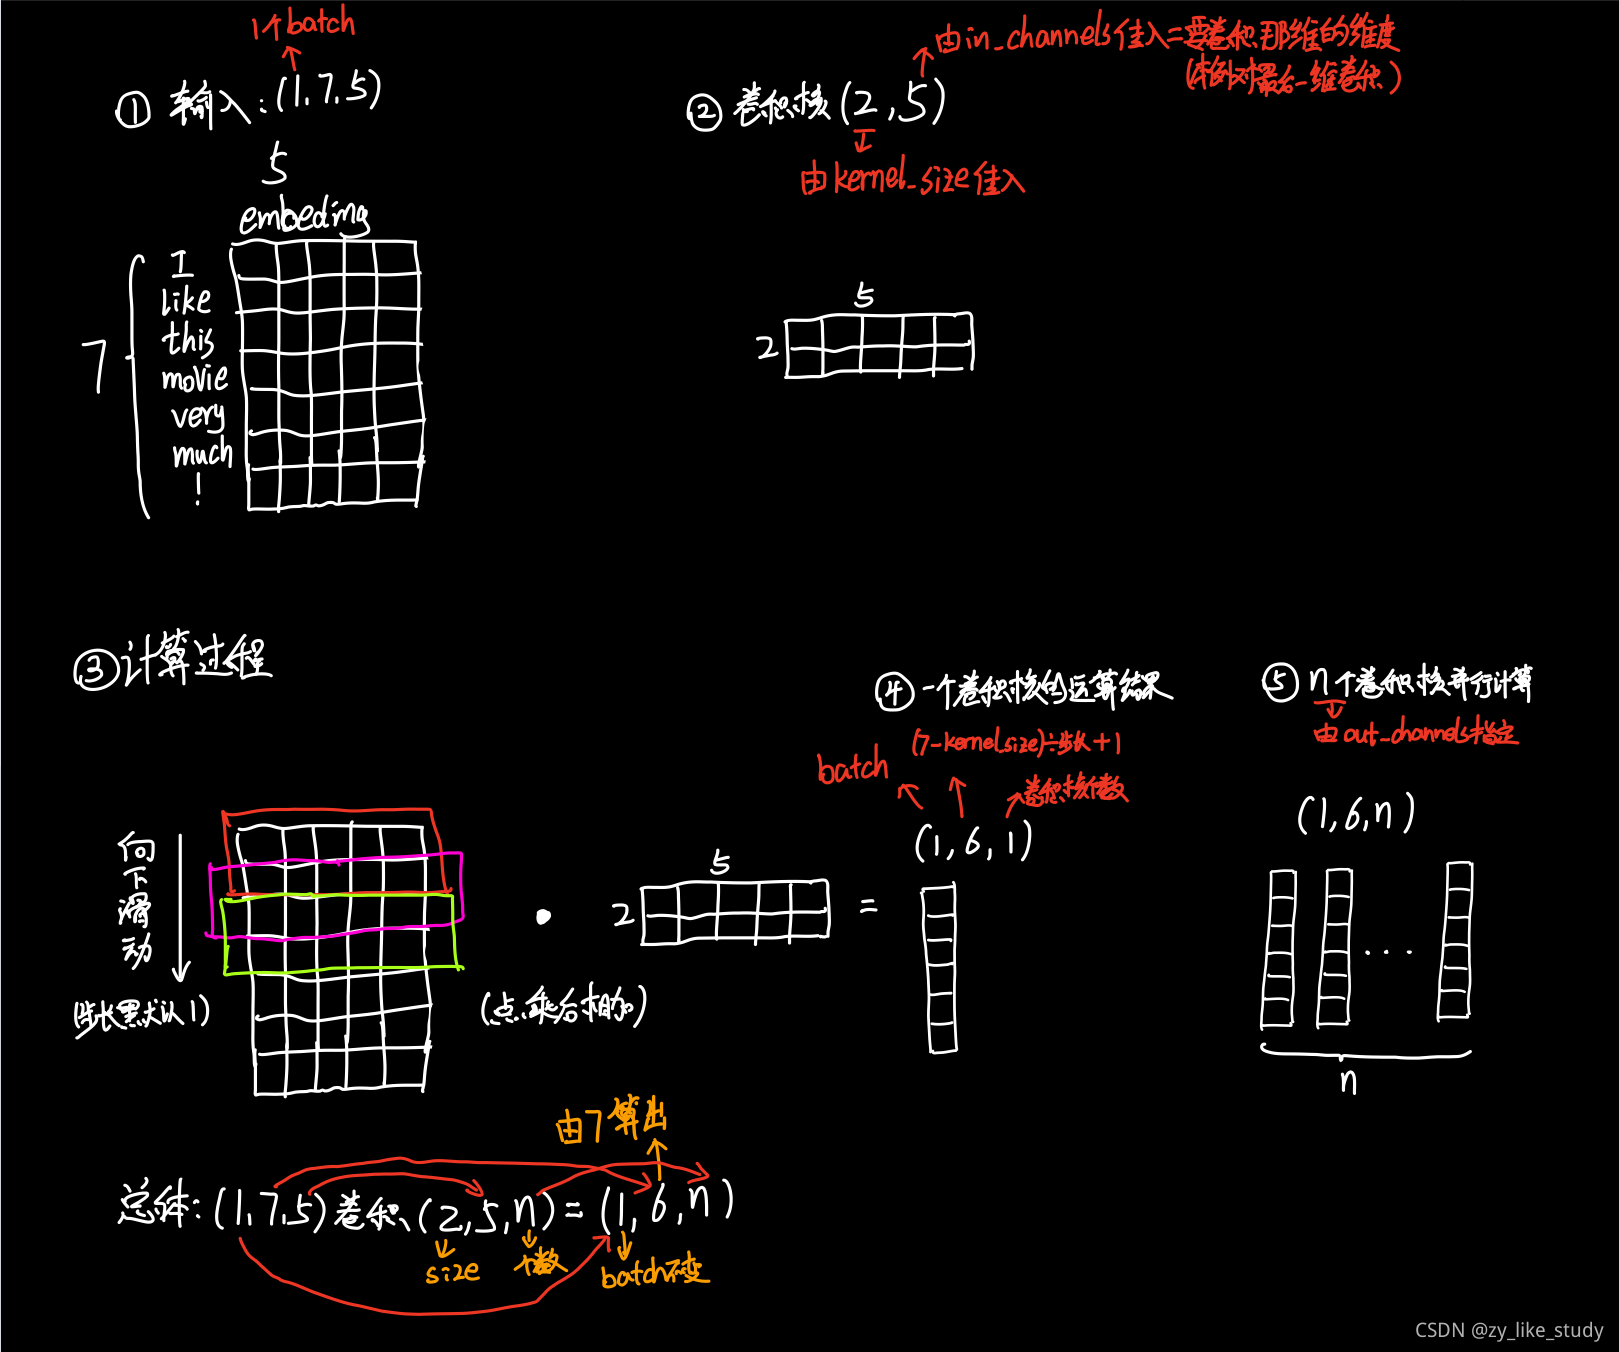 1个batch
① 输入:(1,7,5)
5
embeding
7
I
like
this
movie
very
much
!
由in_channels传入=要卷积那维的维度
(本例对最后一维卷积)
② 卷积核(2,5)
由kernel_size传入
5
2
③ 计算过程
向下滑动
(步长默认1)
5
2
·
=
(点乘后相加)
④ 一个卷积核的运算结果
(7-kernel_size)÷步长+1
batch
卷积核个数
(1,6,1)
⑤ n个卷积核并行计算
由out_channels指定
(1,6,n)
...
n
由7算出
总体:(1,7,5)卷积(2,5,n)=(1,6,n)
size
个数
batch不变
CSDN @zy_like_study